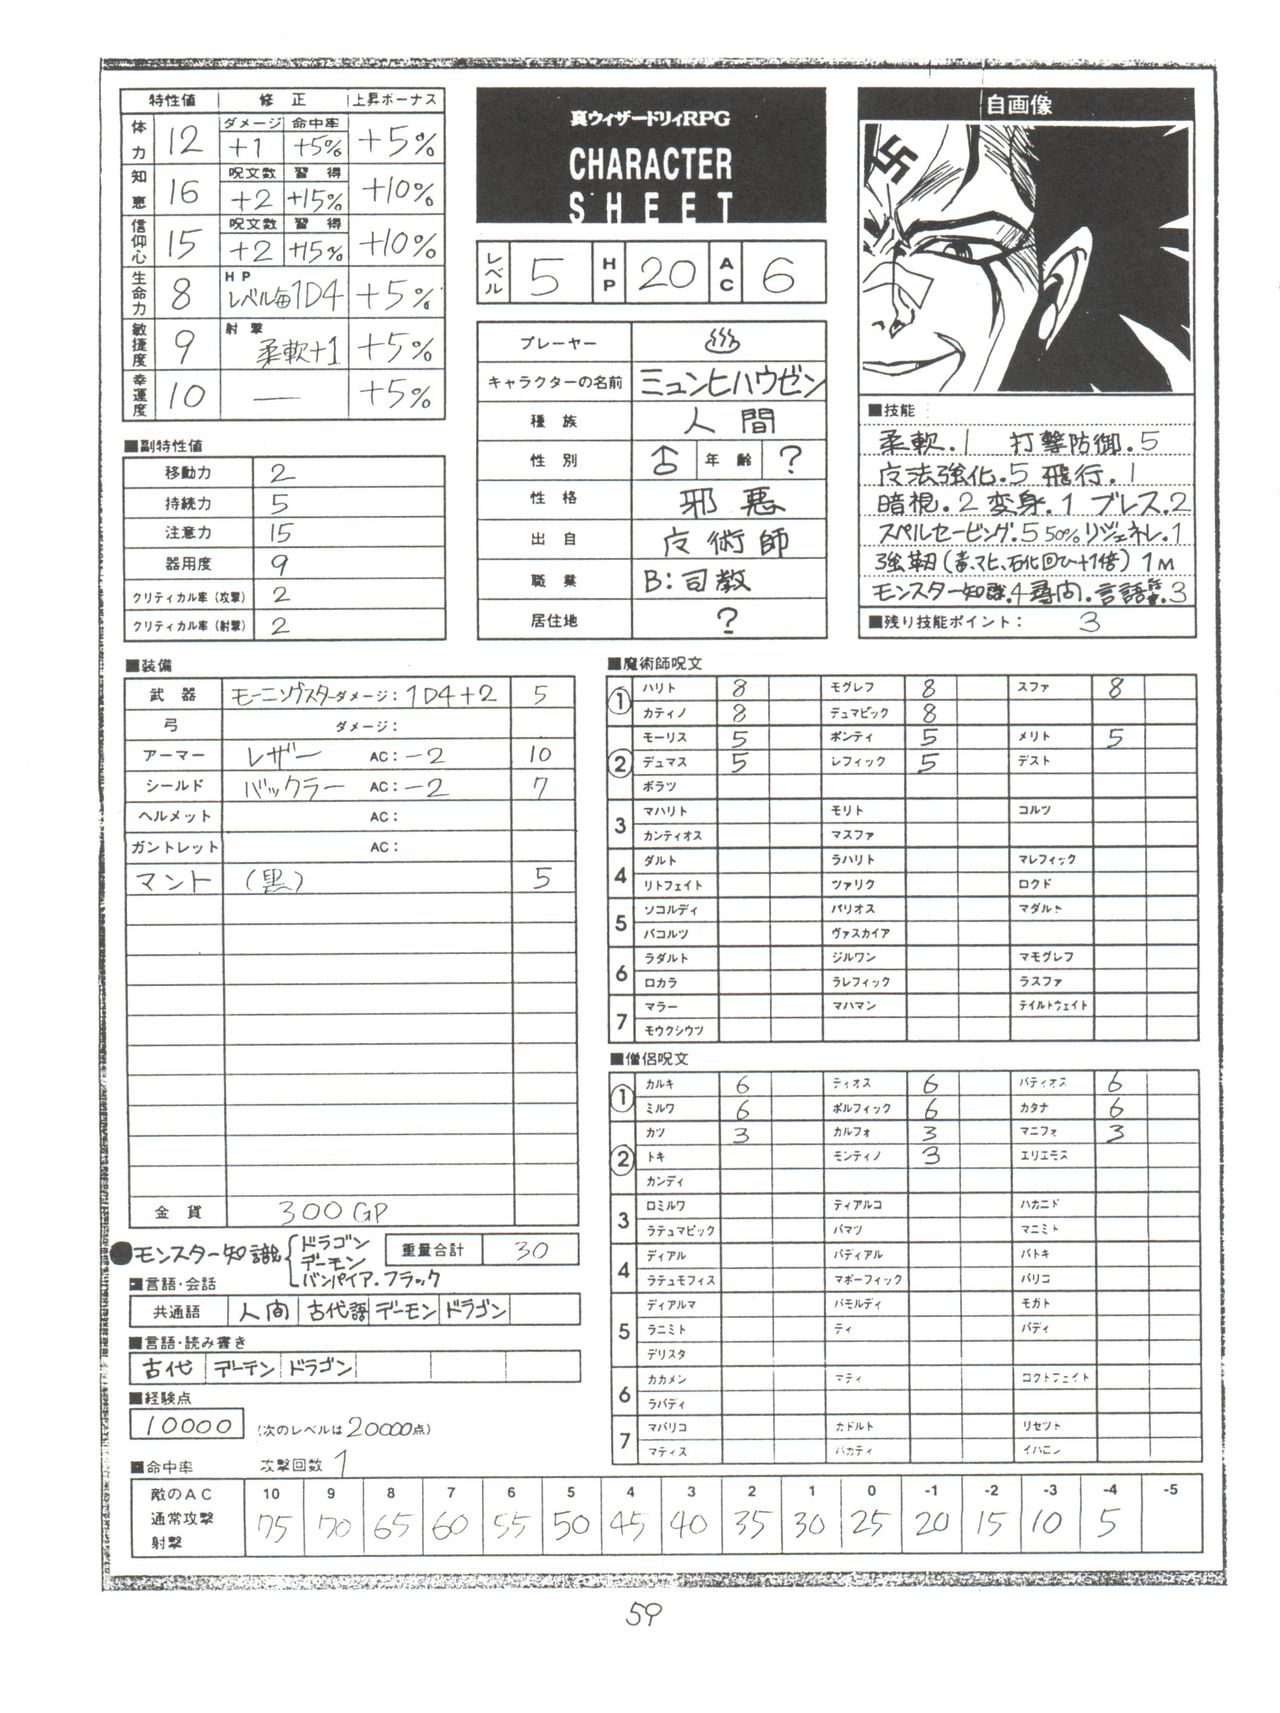 特性値 修正 上昇ボーナス
体力 12 ダメージ +1 命中率 +5% +5%
知恵 16 呪文数 +2 習得 +15% +10%
信仰心 15 呪文数 +2 習得 +15% +10%
生命力 8 HP レベル毎1D4 +5%
敏捷度 9 射撃 柔軟+1 +5%
幸運度 10 — +5%
■副特性値
移動力 2
持続力 5
注意力 15
器用度 9
クリティカル率(攻撃) 2
クリティカル率(射撃) 2
真ウィザードリィRPG
CHARACTER
SHEET
レベル 5 HP 20 AC 6
プレーヤー ♨
キャラクターの名前 ミュンヒハウゼン
種族 人間
性別 ♂ 年齢 ?
性格 邪悪
出自 魔術師
職業 B:司教
居住地 ?
自画像
■技能
柔軟.1 打撃防御.5
魔法強化.5 飛行.1
暗視.2 変身.1 ブレス.2
スペルセービング.5 50% リジェネレ.1
強靭(毒、マヒ、石化回ひ+1倍) 1M
モンスター知識.4 尋問.言語.3
■残り技能ポイント: 3
■装備
武器 モーニングスター ダメージ:1D4+2 5
弓 ダメージ:
アーマー レザー AC:-2 10
シールド バックラー AC:-2 7
ヘルメット AC:
ガントレット AC:
マント (黒) 5
金貨 300GP
●モンスター知識 ドラゴン
デーモン
バンパイア.フラック
重量合計 30
■言語・会話
共通語 人間 古代語 デーモン ドラゴン
■言語・読み書き
古代 デーモン ドラゴン
■経験点
10000 (次のレベルは20000点)
■魔術師呪文
① ハリト 8 モグレフ 8 スファ 8
カティノ 8 デュマピック 8
② モーリス 5 ボンティ 5 メリト 5
デュマス 5 レフィック 5 デスト
ボラツ
3 マハリト モリト コルツ
カンティオス マスファ
4 ダルト ラハリト マレフィック
リトフェイト ツァリク ロクド
5 ソコルディ パリオス マダルト
バコルツ ヴァスカイア
6 ラダルト ジルワン マモグレフ
ロカラ ラレフィック ラスファ
7 マラー マハマン テイルトウェイト
モウクシウツ
■僧侶呪文
① カルキ 6 ティオス 6 バティオス 6
ミルワ 6 ポルフィック 6 カタナ 6
② カツ 3 カルフォ 3 マニフォ 3
トキ モンティノ 3 エリエモス
カンディ
3 ロミルワ ディアルコ ハカニド
ラテュマピック バマツ マニミト
4 ディアル バディアル バトキ
ラテュモフィス マポーフィック バリコ
5 ディアルマ バモルディ モガト
ラニミト ティ バディ
デリスタ
6 カカメン マティ ロクトフェイト
ラバディ
7 マバリコ カドルト リセツト
マティス バカティ イハロン
■命中率 攻撃回数 1
敵のAC 10 9 8 7 6 5 4 3 2 1 0 -1 -2 -3 -4 -5
通常攻撃 75 70 65 60 55 50 45 40 35 30 25 20 15 10 5
射撃
59